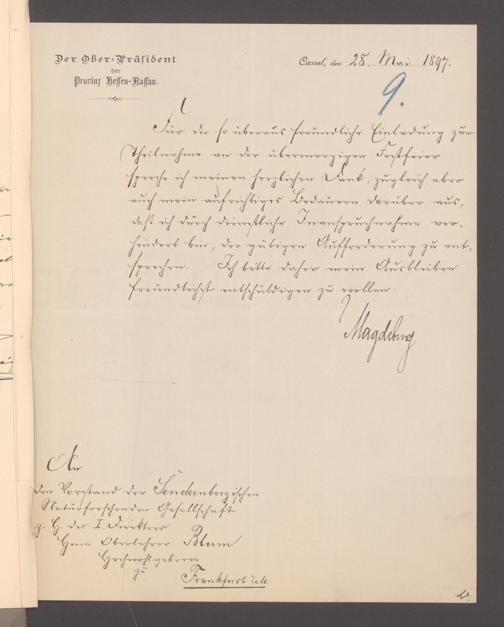 Der Ober-Präsident
der
Provinz Hessen-Nassau.
Cassel, den 28. Mai 1897.
9.
Für die so überaus freundliche Einladung zur
Theilnahme an der übermorgigen Festfeier
spreche ich meinen herzlichen Dank, zugleich aber
auch mein aufrichtiges Bedauern darüber aus,
daß ich durch dienstliche Inanspruchnahme ver-
hindert bin, der gütigen Aufforderung zu ent-
sprechen. Ich bitte daher mein Ausbleiben
freundlichst entschuldigen zu wollen.
Magdeburg
An
den Vorstand der Senckenbergischen
Naturforschenden Gesellschaft
z. H. des I. Direktors
Herrn Oberlehrer Blum
Hochwohlgeboren
zu
Frankfurt a/M